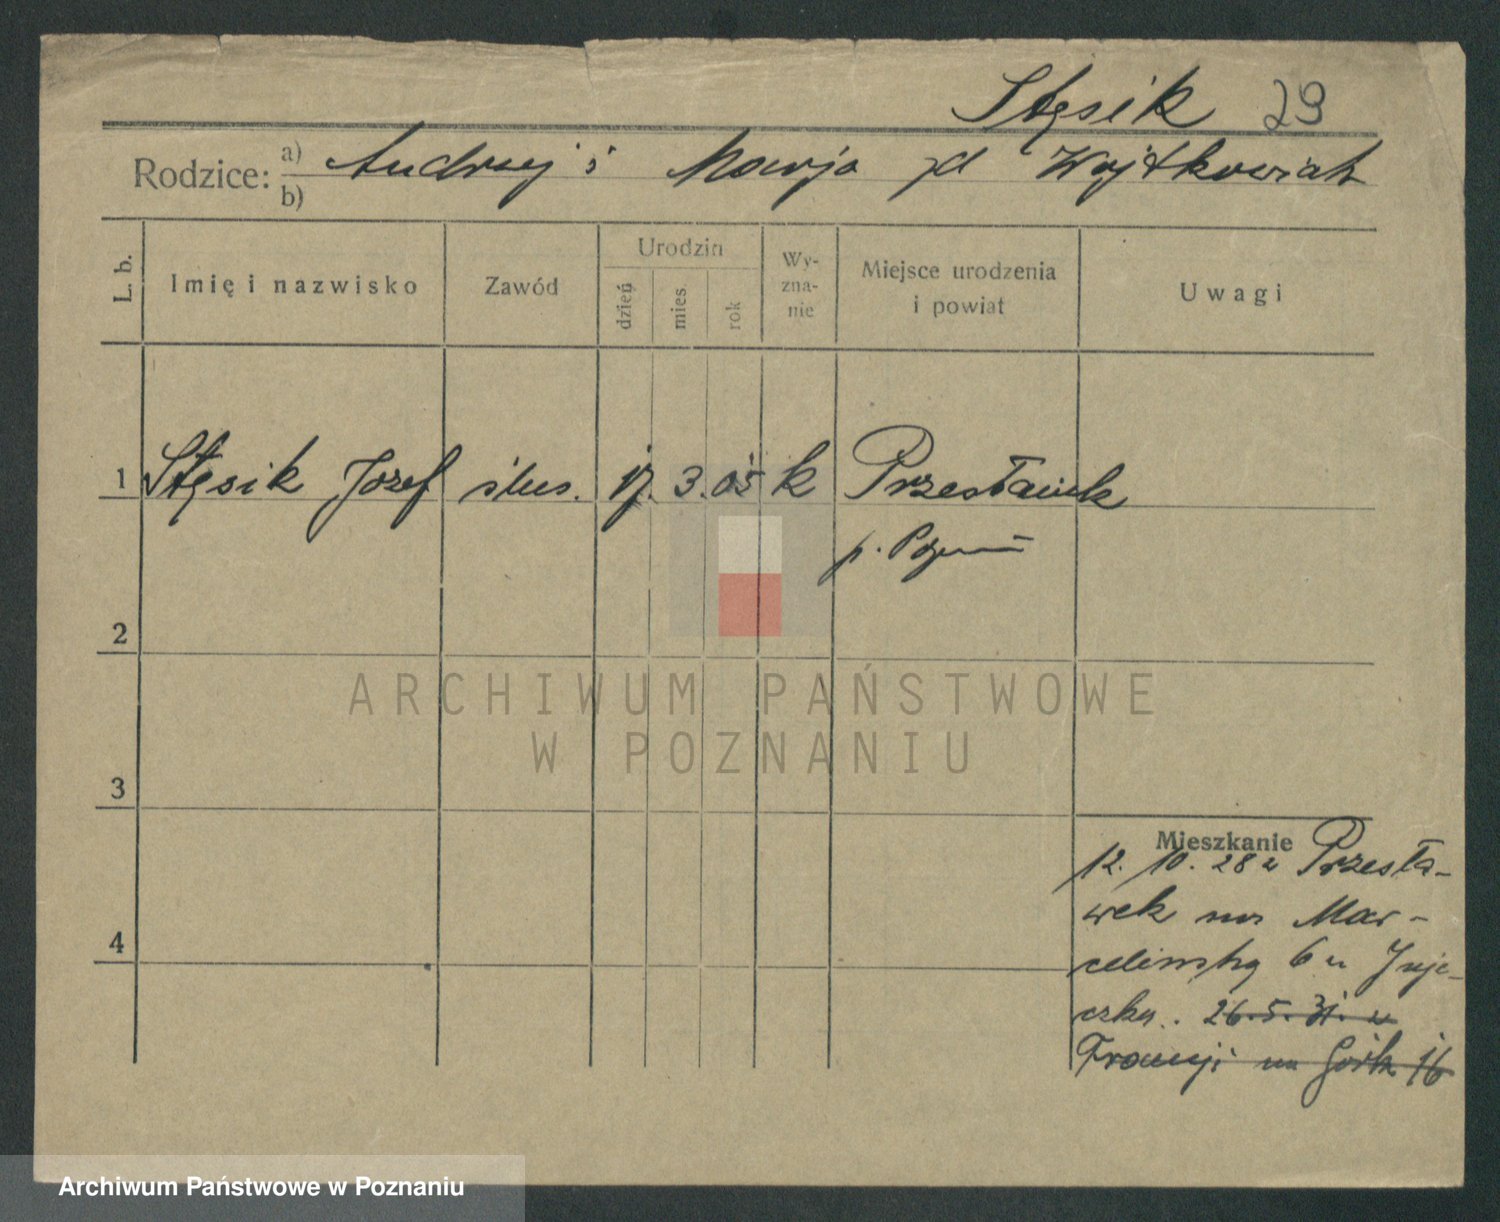 Stęsik 29
Rodzice: a) Andrzej i Marja zd Wojtkowiak
b)
L. b.
Imię i nazwisko
Zawód
Urodzin
dzień
mies.
rok
Wy-
zna-
nie
Miejsce urodzenia
i powiat
Uwagi
1 Stęsik Józef ślus. 17. 3. 05 k Przesławek
p. Pozn
2
ARCHIWUM PAŃSTWOWE
W POZNANIU
3
Mieszkanie
12. 10. 28 z Przesła-
wek na Mar-
celińską 6 u
czka. 26. 5. 31. z
Francji na 16
4
Archiwum Państwowe w Poznaniu